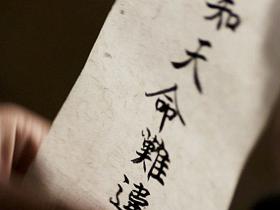 和天命難違